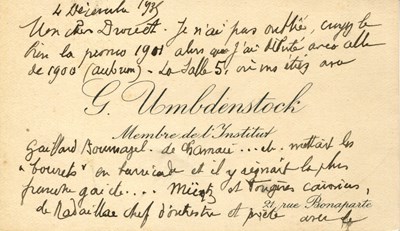 4 Décembre 1935
Mon cher Drocourt. Je n'ai pas oublié, croyez le
bien la promo 1901 alors que j'ai débuté avec celle
de 1900 (aubrun) - La Salle 5, où vous étiez avec
G. Umbdenstock
Membre de l'Institut
Gaillard Bournazel. de Charnacé ... etc. mettait les
"bourets" en barricade et il y régnait la plus
franche gaieté... et Fougères caïmans,
21, rue Bonaparte
de Radaillac chef d'orchestre et poète avec